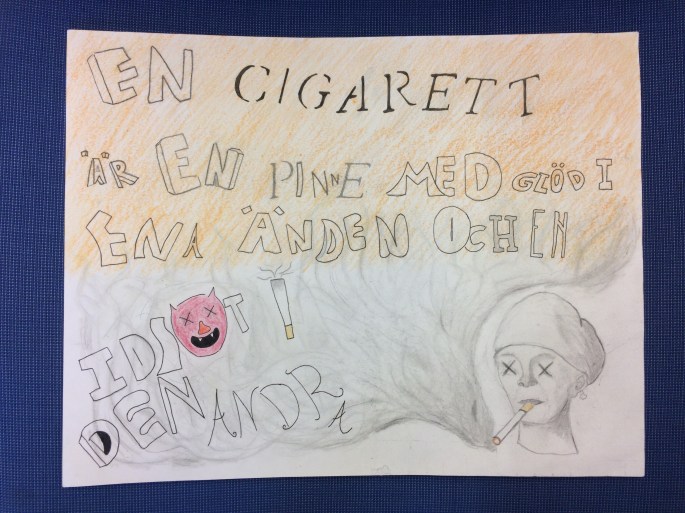 EN CIGARETT
ÄR EN PINNE MED GLÖD I
ENA ÄNDEN OCH EN
IDIOT I
DEN ANDRA